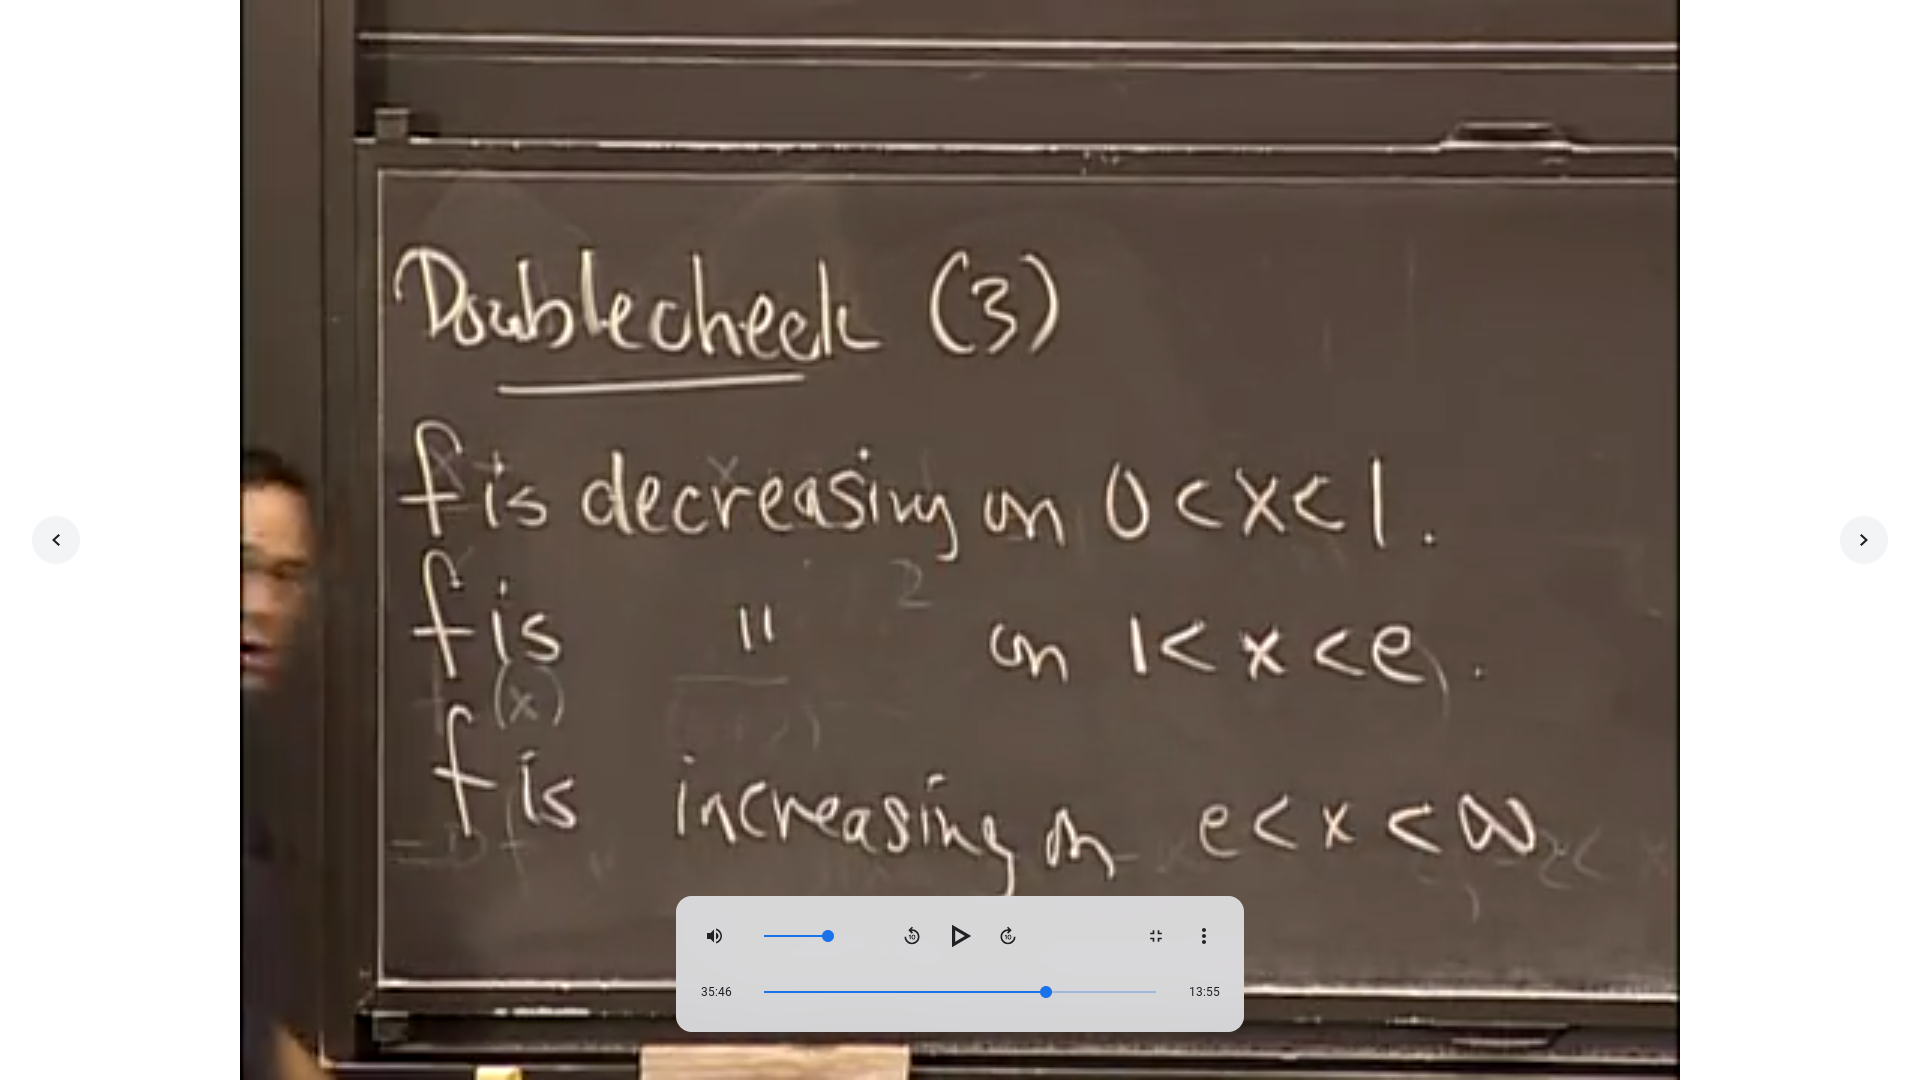 Doublecheck (3)
f is decreasing on 0 < x < 1.
f is " on 1 < x < e.
f is increasing on e < x < ∞
10
10
35:46
13:55